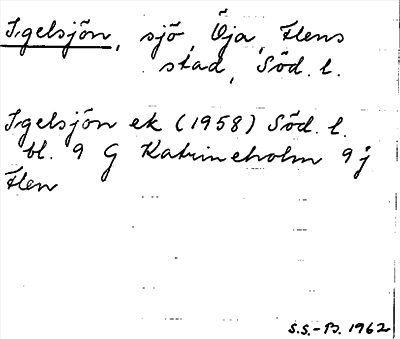 Igelsjön, sjö, Öja, Flens
stad, Söd. l.
Igelsjön ek (1958) Söd. l.
bl. 9 G Katrineholm 9 j
Flen
S.S.-B. 1962